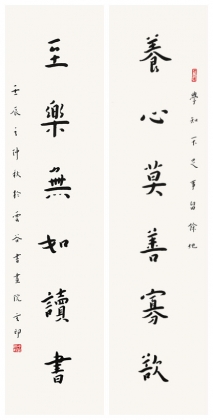 學知不足 事留餘地
養心莫善寡欲
至樂無如讀書
壬辰之仲秋於雲谷書畫院主印